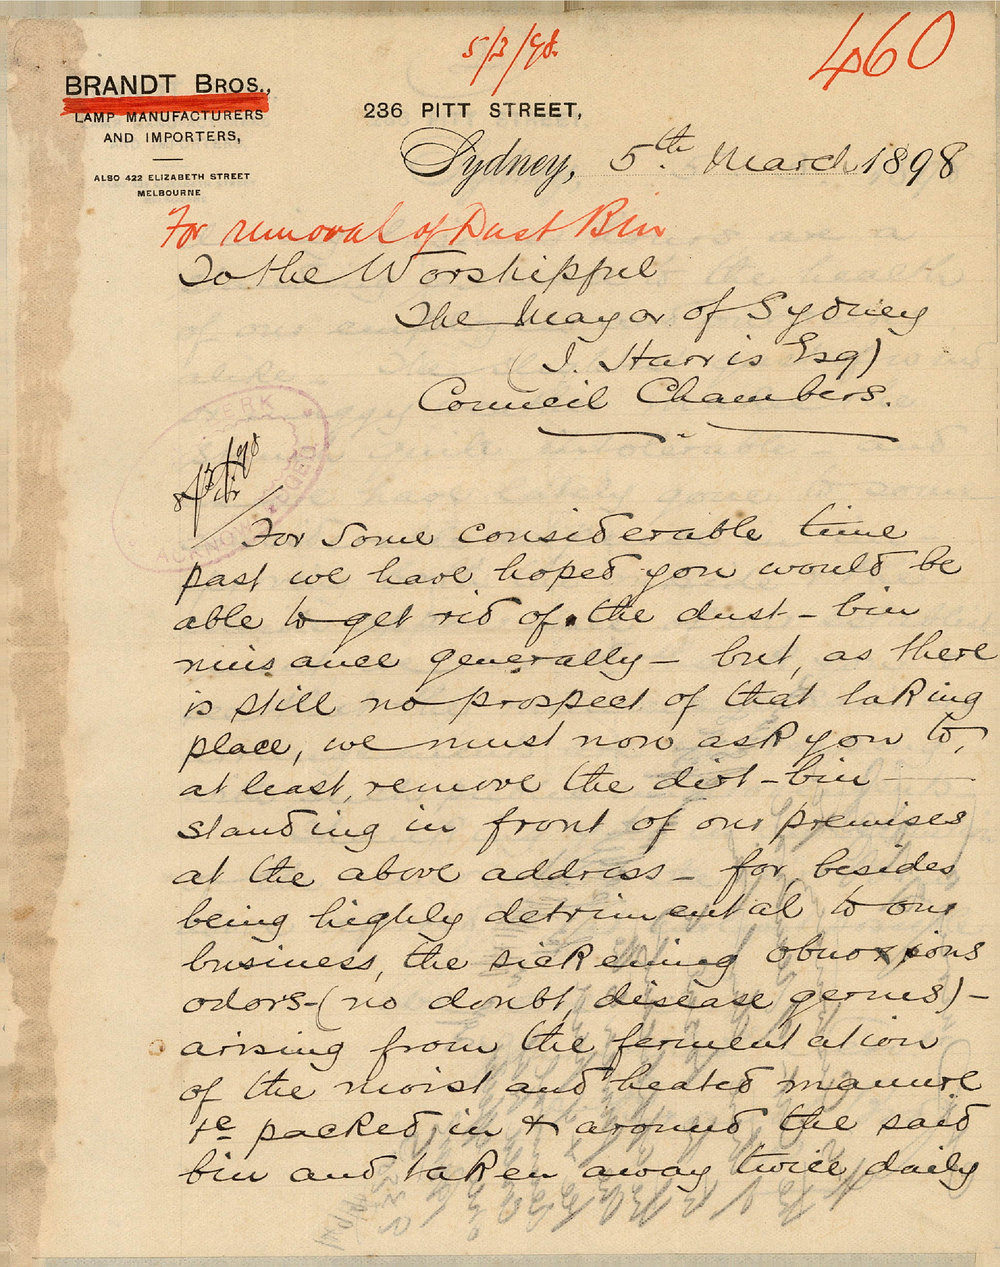 5/3/98.
460
BRANDT BROS.,
LAMP MANUFACTURERS
AND IMPORTERS,
ALSO 422 ELIZABETH STREET
MELBOURNE
236 PITT STREET,
Sydney, 5th March 1898
For removal of Dust Bin
To the Worshipful
The Mayor of Sydney
(I. Harris Esq)
Council Chambers.
CLERK
ACKNOWLEDGED
For some considerable time
past we have hoped you would be
able to get rid of the dust-bin
nuisance generally - but, as there
is still no prospect of that taking
place, we must now ask you to,
at least, remove the dirt-bin
standing in front of our premises
at the above address - for, besides
being highly detrimental to our
business, the sickening obnoxsions
odors - (no doubt, disease germs) -
arising from the fermentation
of the moist and heated manure
&c packed in & around the said
bin and taken away twice daily